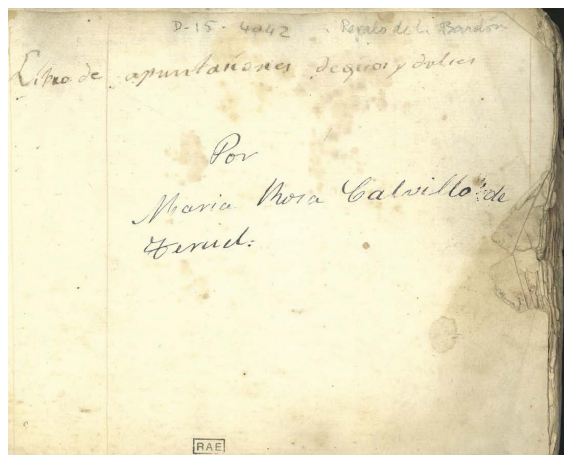 D-15-4042 Regalo de L. Bardón
Libro de apuntaciones de guisos y dulces
Por
Maria Rosa Calvillo de
Teruel.
RAE